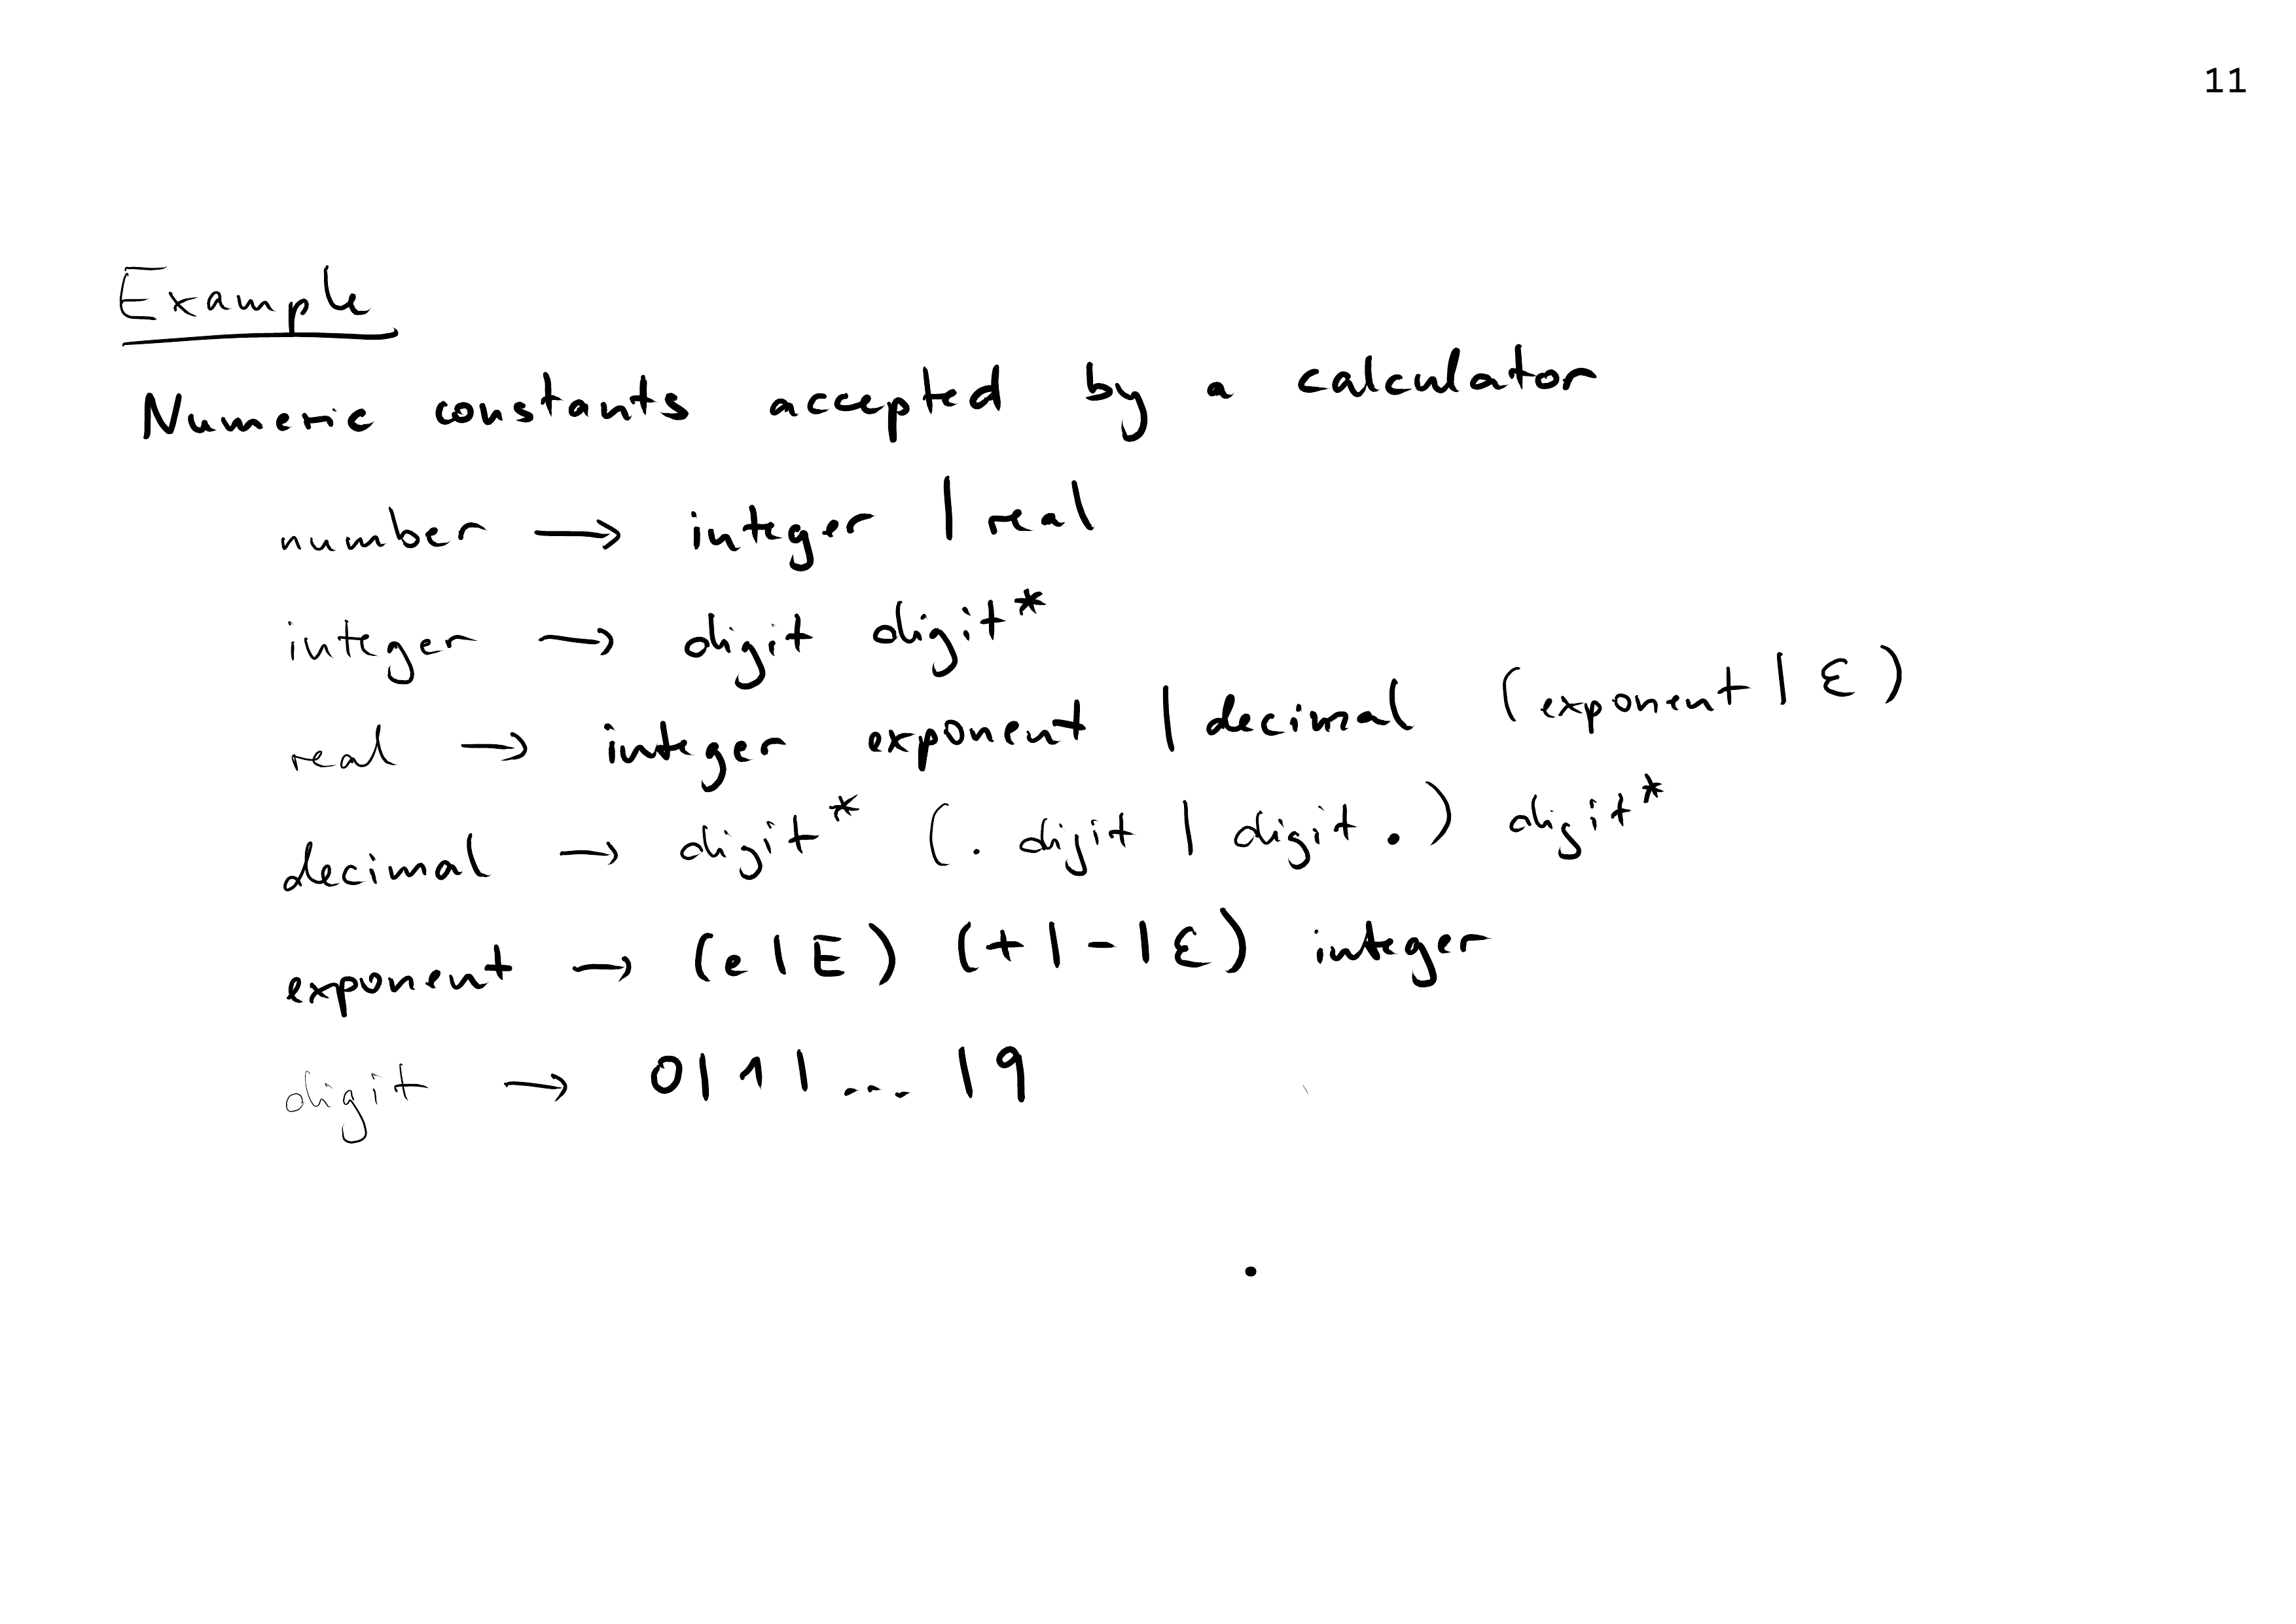 11
Example
Numeric constants accepted by a calculator
number → integer | real
integer → digit digit*
real → integer exponent | decimal (exponent | ε)
decimal → digit* (. digit | digit .) digit*
exponent → (e|E) (+|-|ε) integer
digit → 0|1|...|9